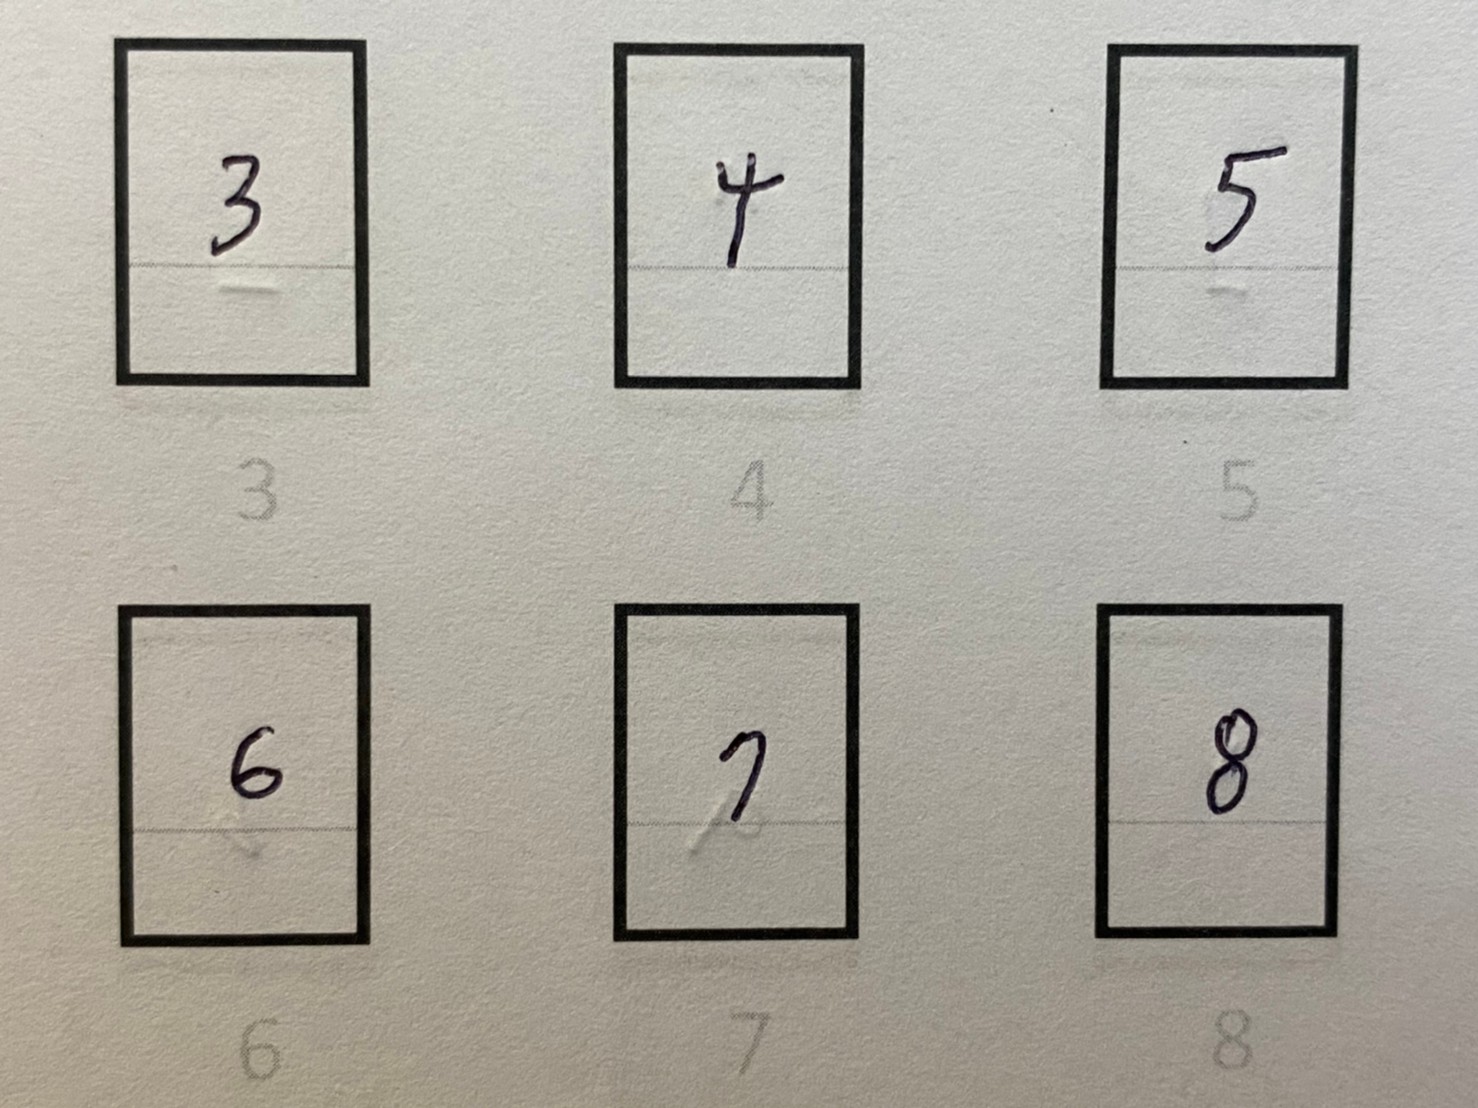 3 4 5
3 4 5
6 7 8
6 7 8